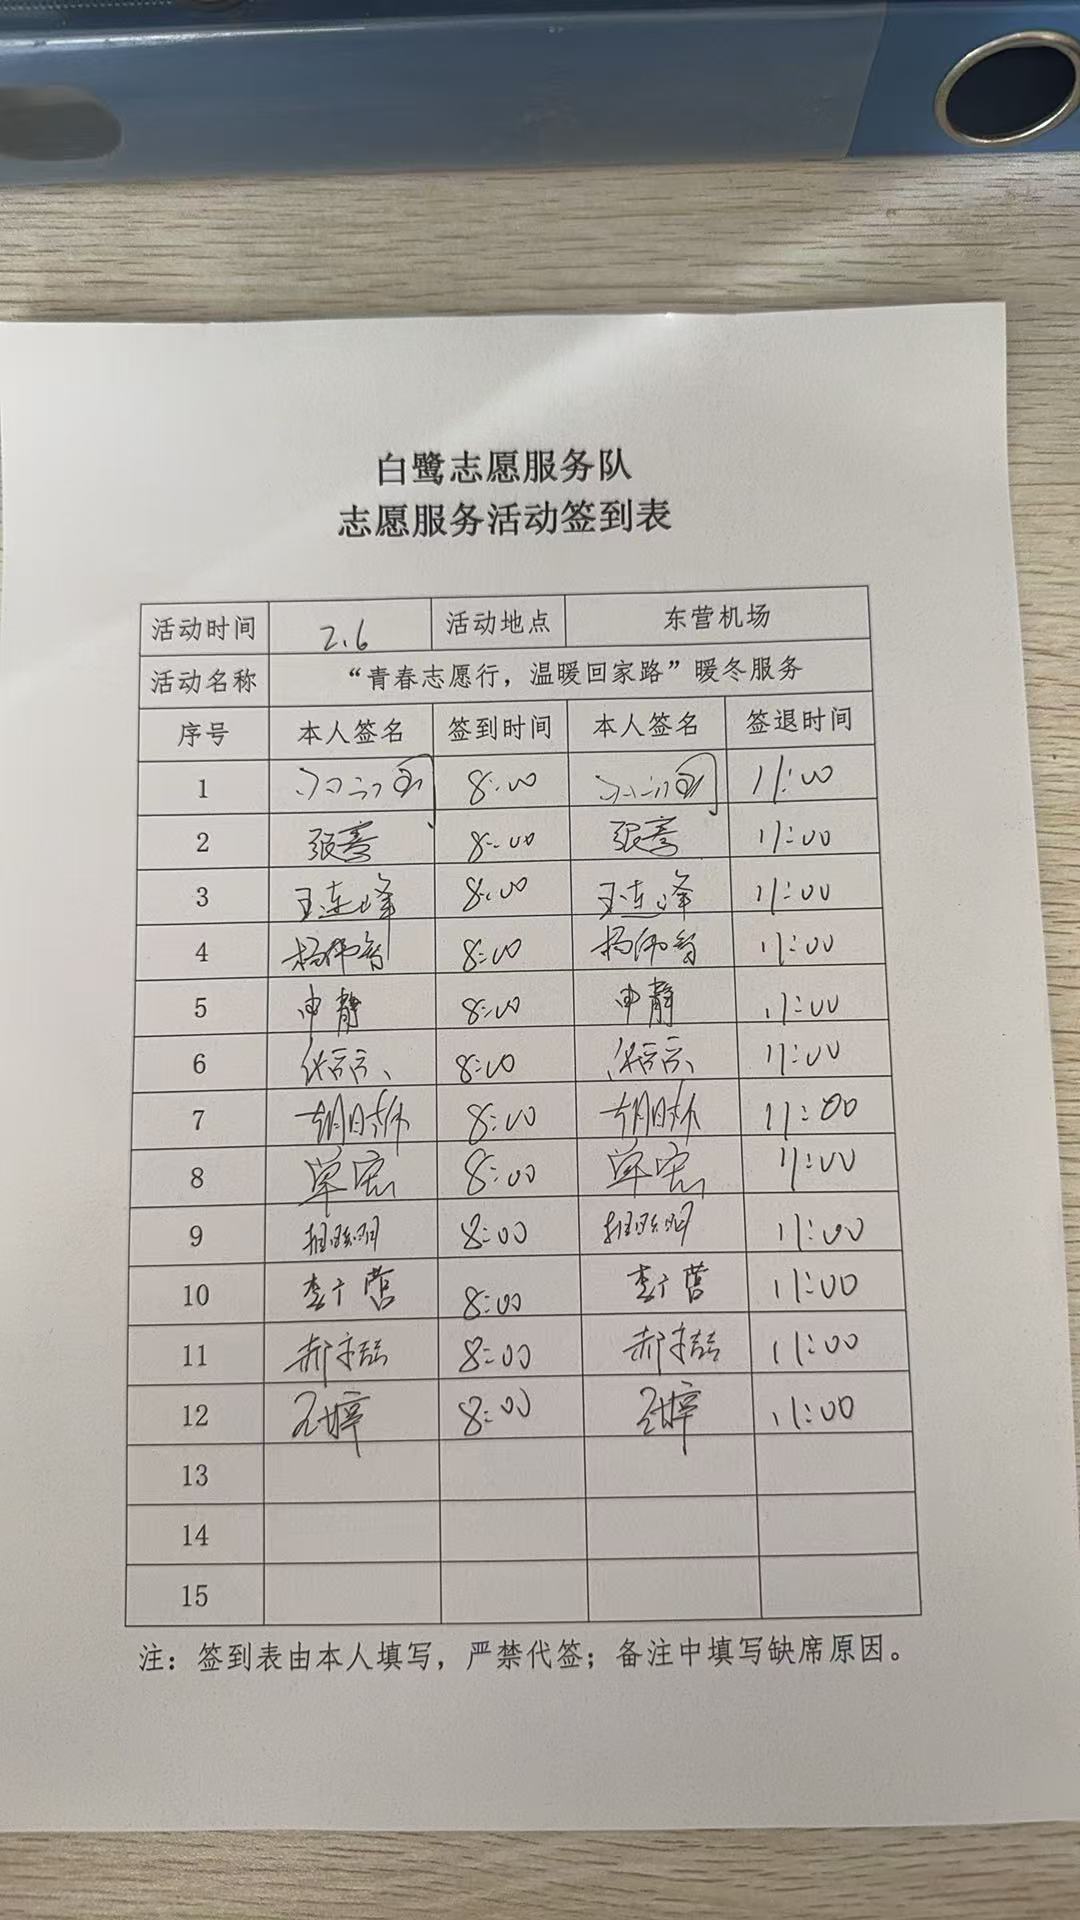 白鹭志愿服务队
志愿服务活动签到表
活动时间 2.6 活动地点 东营机场
活动名称 “青春志愿行，温暖回家路”暖冬服务
序号 本人签名 签到时间 本人签名 签退时间
1 8:00 11:00
2 8:00 11:00
3 王连峰 8:00 王连峰 11:00
4 杨伟智 8:00 杨伟智 11:00
5 申静 8:00 申静 11:00
6 8:00 11:00
7 8:00 11:00
8 单宏 8:00 单宏 11:00
9 8:00 11:00
10 8:00 11:00
11 郝喆 8:00 郝喆 11:00
12 8:00 11:00
13
14
15
注：签到表由本人填写，严禁代签；备注中填写缺席原因。